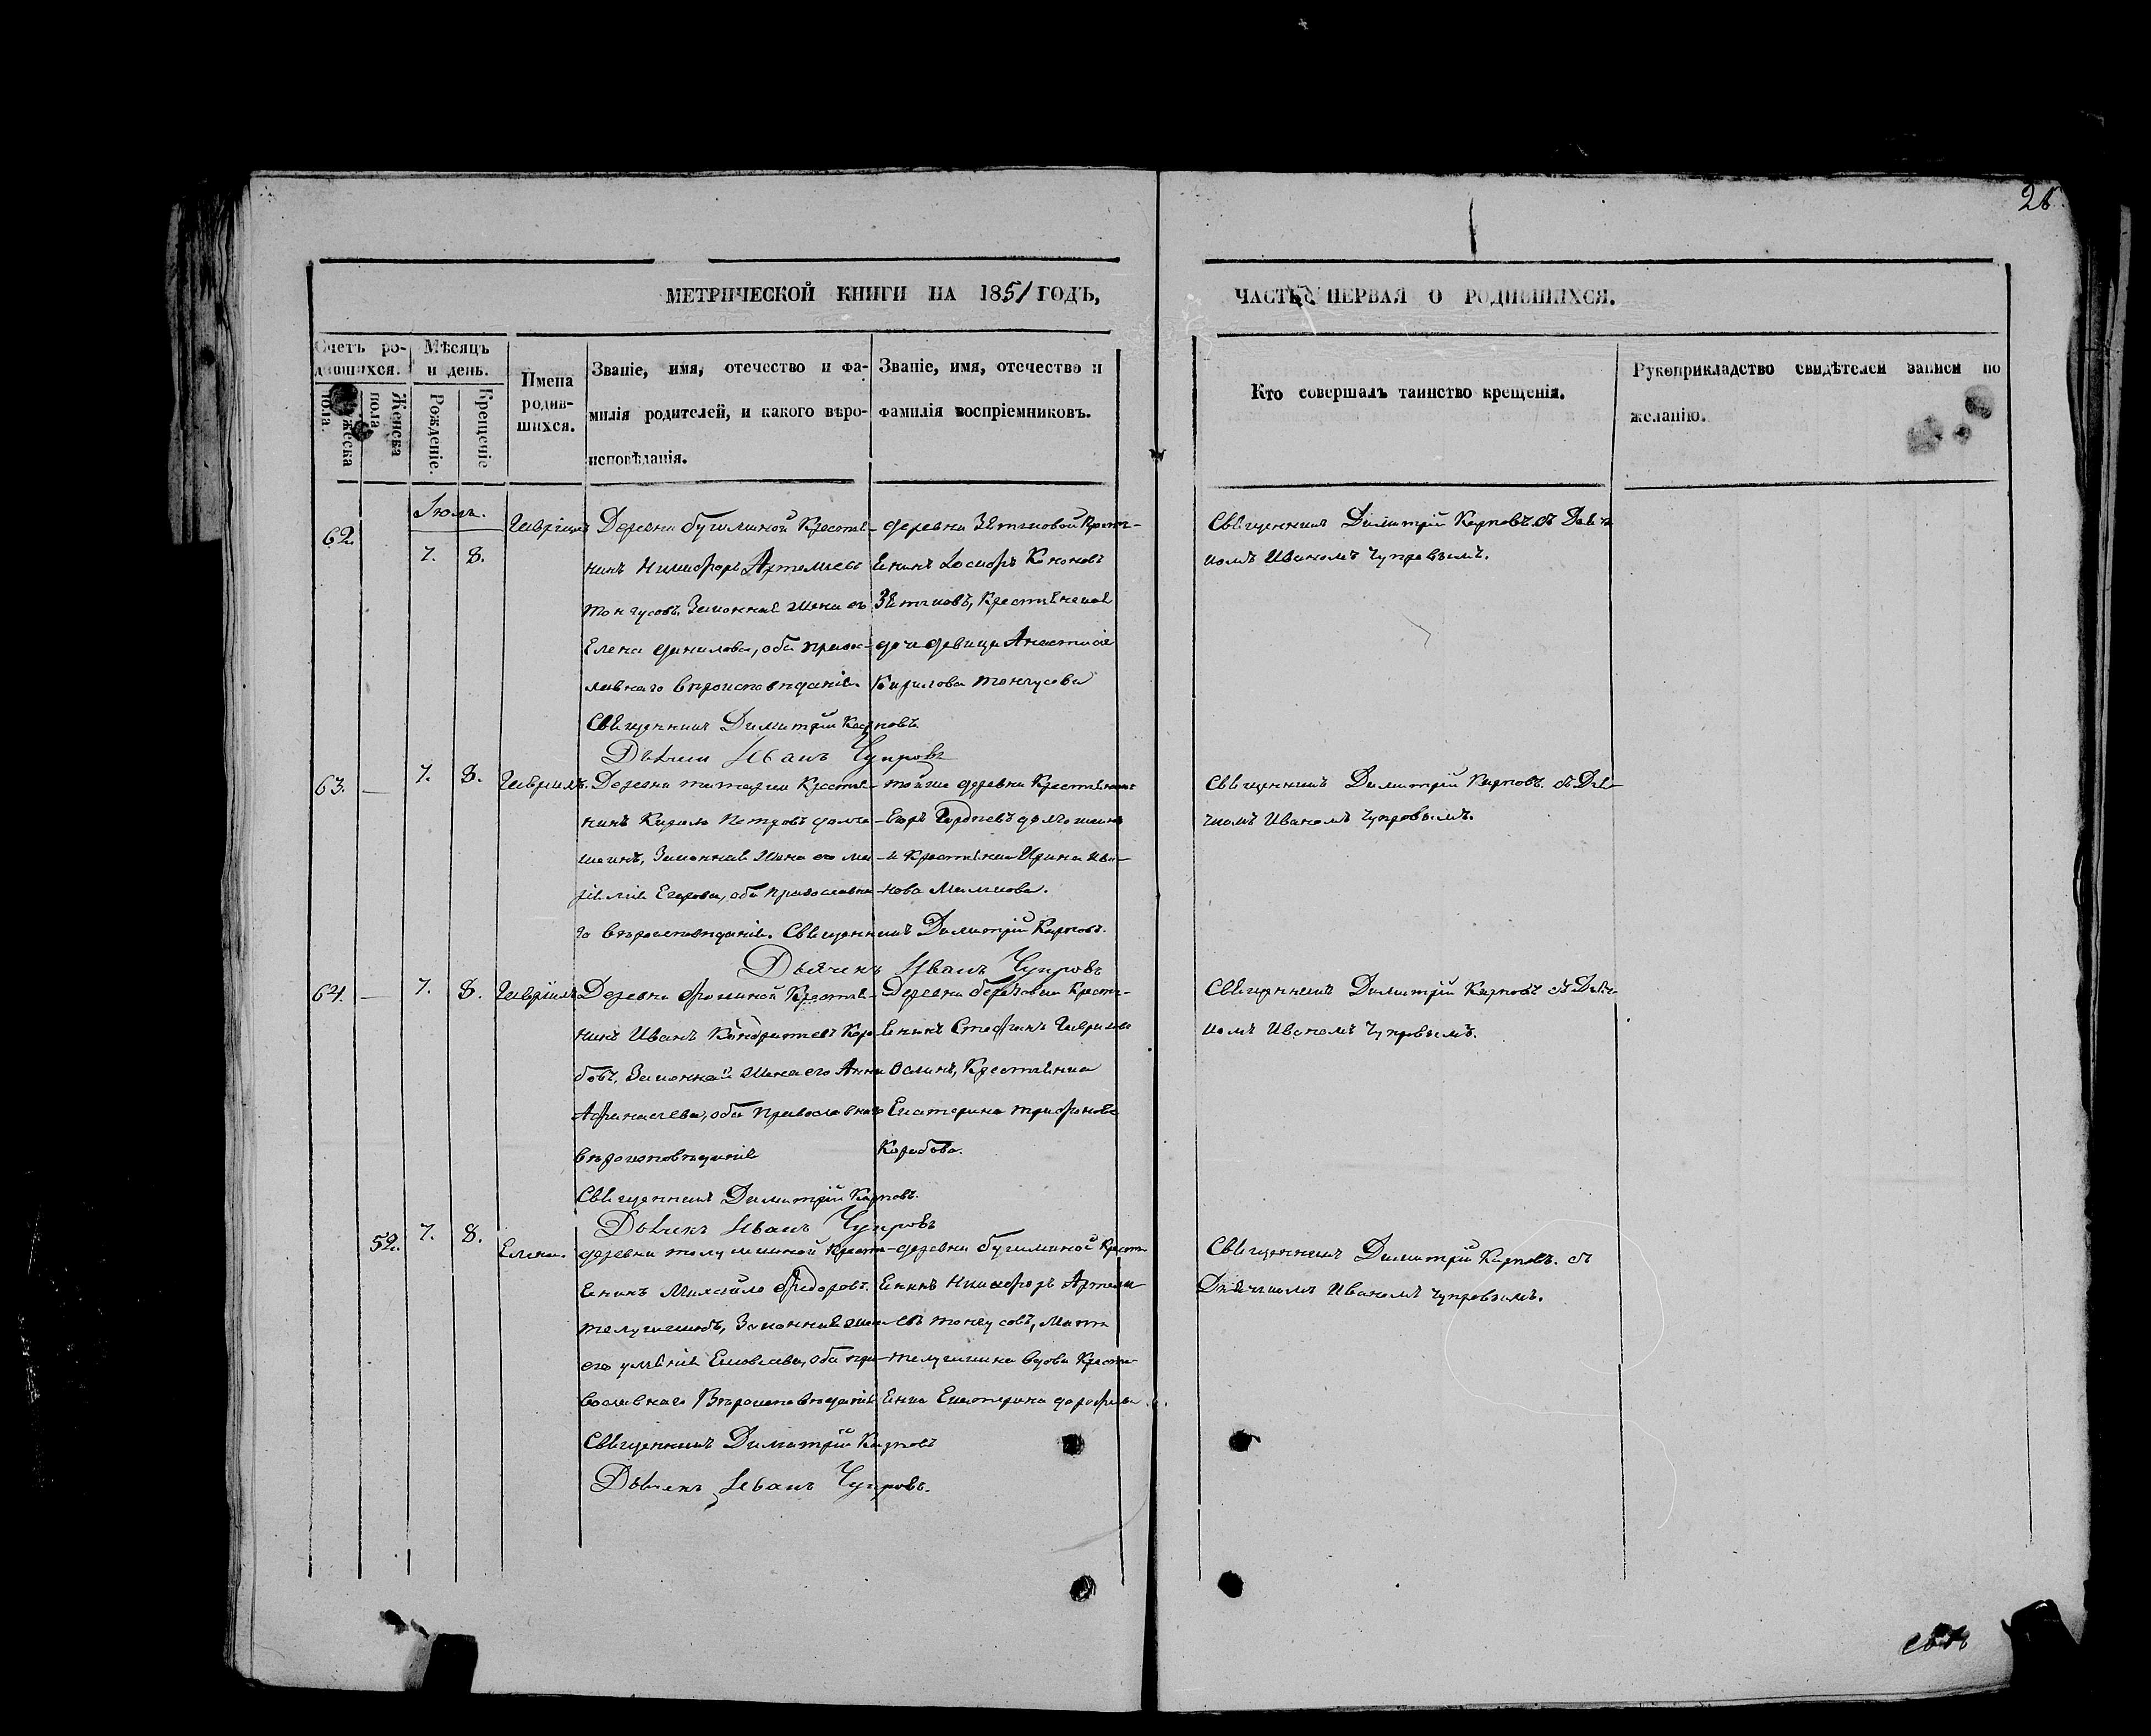 28.
МЕТРИЧЕСКОЙ КНИГИ НА 1851 ГОДЪ,
ЧАСТЬ ПЕРВАЯ О РОДИВШИХСЯ.
Счетъ ро-
дившихся.
Мужеска пола.
Женска пола
Мѣсяцъ
и день.
Рожденіе.
Крещеніе
Имена
родив-
шихся.
Званіе, имя, отечество и фа-
милія родителей, и какого вѣро-
исповѣданія.
Званіе, имя, отечество и
фамилія воспріемниковъ.
Кто совершалъ таинство крещенія.
Рукоприкладство свидѣтелей записи по
желанію.
Іюль.
62. 7. 8. Гавріилъ
Деревни Крестья-
нинъ Никифоръ Артемьевъ
Тонгусовъ. Законная жена его
Елена Данилова, оба правос-
лавнаго вѣроисповѣданія
Священникъ Димитрій Карповъ
Дьячекъ Иванъ Чупровъ
деревни Зятьковой Крест-
янинъ Іосифъ Кононовъ
Зятьковъ, Крестьянская
дочь девица Анастасія
Кирилова Тонгусова
Священникъ Димитрій Карповъ. съ Дьяч-
комъ Иваномъ Чупровымъ.
63. — 7. 8. Гавріилъ.
Деревни Крестья-
нинъ Петровъ Долго-
шеинъ, Законная жена его
Егорова, оба православна-
го вѣроисповѣданія. Священникъ Димитрій Карповъ.
Дьячекъ Иванъ Чупровъ
той же деревни Крестьянинъ
и Крестьянка Ирина Ива-
нова
Священникъ Димитрій Карповъ. съ Дья-
чкомъ Иваномъ Чупровымъ.
64. — 7. 8. Гавріилъ
Деревни Фроминой Крестья-
нинъ Иванъ Кондратьевъ Коро-
бовъ, Законная жена его Анна
Афанасьева, оба православнаго
вѣроисповѣданія
Священникъ Димитрій Карповъ.
Дьячекъ Иванъ Чупровъ
Деревни Кресть-
янинъ Стефанъ Гаврилов
Крестьянка
Екатерина Трифонова
Коробова.
Священникъ Димитрій Карповъ съ Дьяч-
комъ Иваномъ Чупровымъ.
52. 7. 8. Елена.
деревни Крестья-
янинъ Михайло Федоровъ
Законная жена
его оба пра-
вославнаго Вѣроисповѣданія
Священникъ Димитрій Карповъ
Дьячекъ Иванъ Чупровъ.
деревни Крестья-
янинъ Никифоръ Артемь-
евъ Тонгусовъ,
вдова Кресть-
янка Екатерина
Священникъ Димитрій Карповъ. съ
Дьячкомъ Иваномъ Чупровымъ.